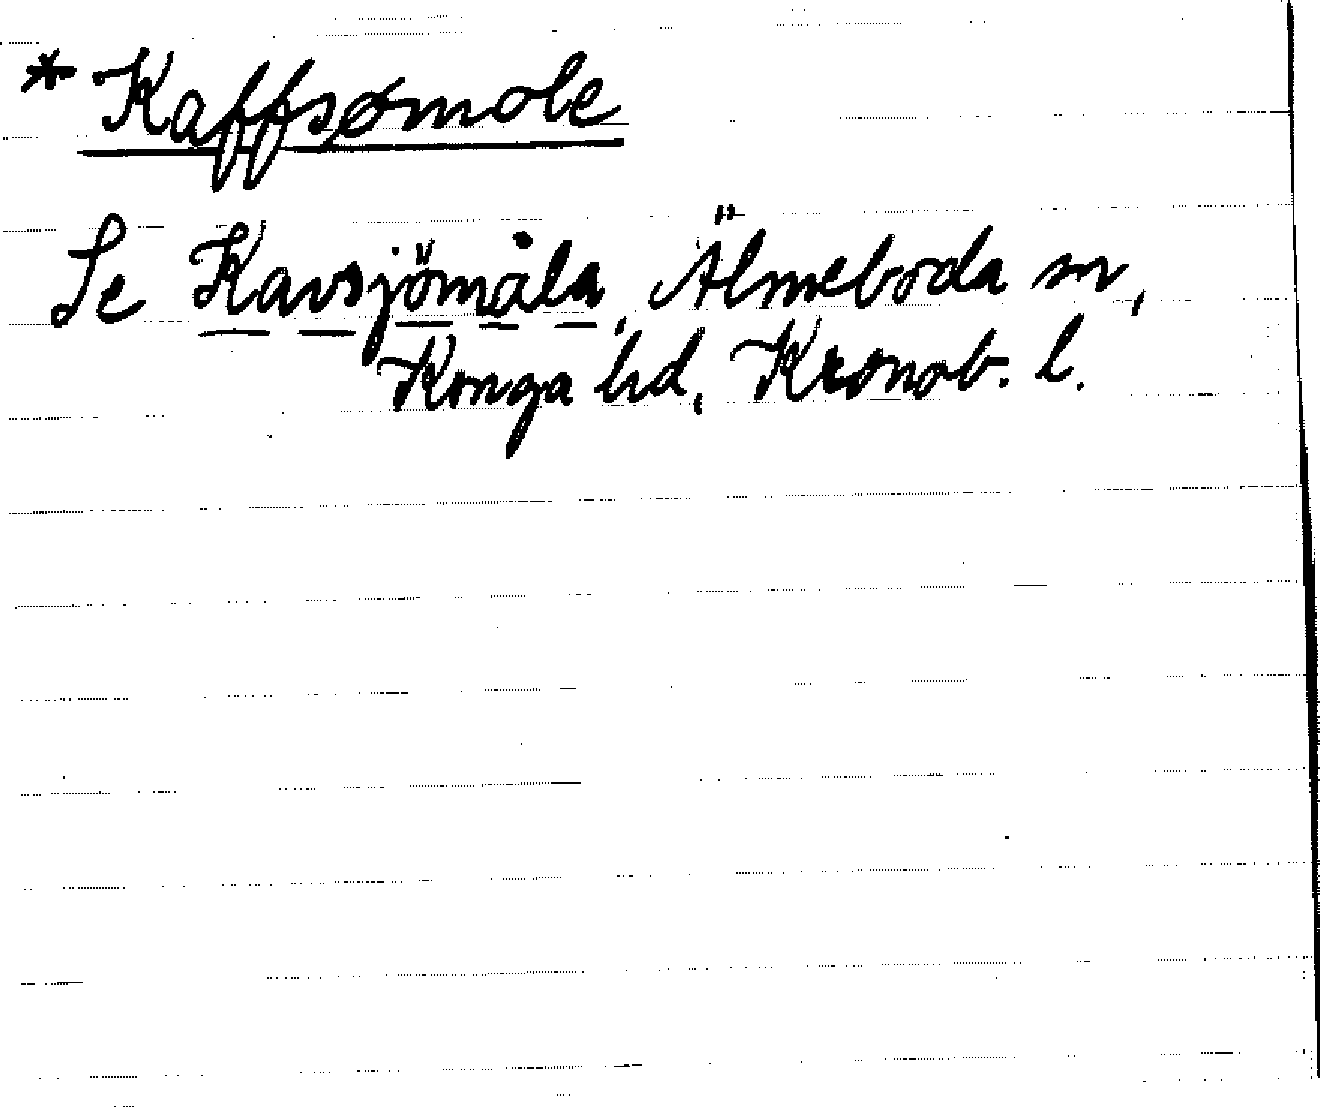 * Kaffsømole
Se Kavsjömåla, Älmeboda sn,
Konga hd, Kronob. l.